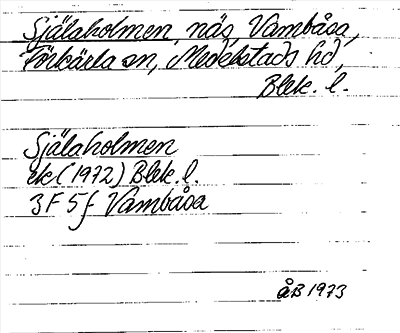 Själaholmen, näs, Vambåsa,
Förkärla sn, Medelstads hd,
Blek. l.
Själaholmen
ek (1972) Blek. l.
3F 5f Vambåsa
åB 1973